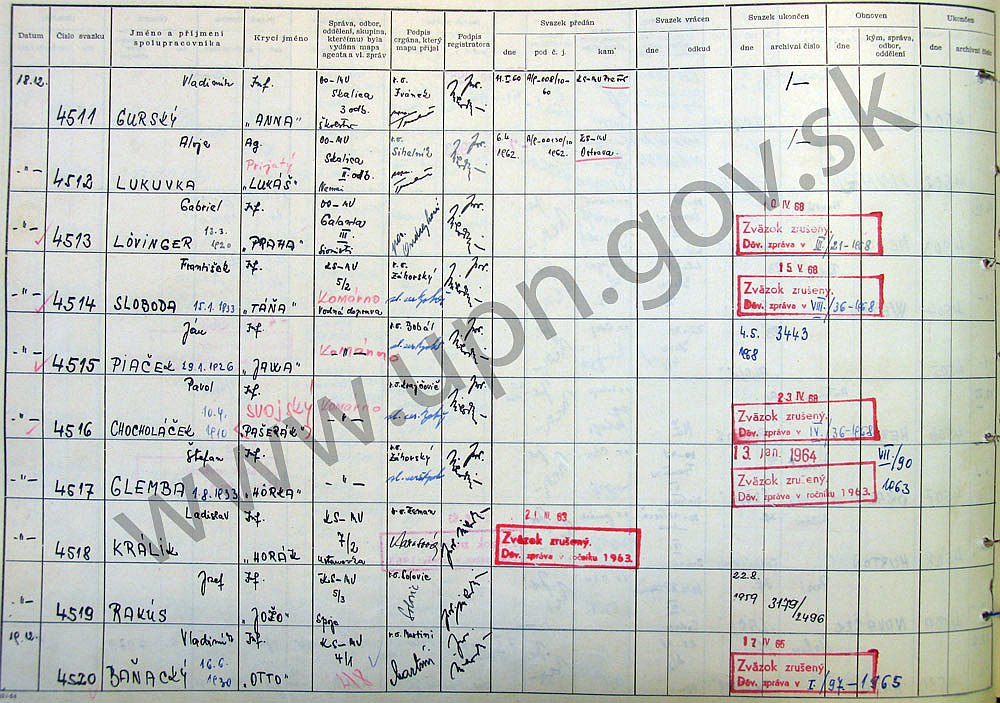 Datum
Číslo svazku
Jméno a příjmení spolupracovníka
Krycí jméno
Správa, odbor, oddělení, skupina, které(mu) byla vydána mapa agenta a vl. zpráv
Podpis orgána, který mapu přijal
Podpis registrátora
Svazek předán
dne
pod č. j.
kam
Svazek vrácen
dne
odkud
Svazek ukončen
dne
archivní číslo
Obnoven
dne
kým, správa, odbor, oddělení
Ukončen
dne
archivní číslo
18.12.
4511
Vladimír
GURSKÝ
Inf.
„ANNA“
OO-MV
Skalica
3 odb.
r.s.
Ivánek
11.I.60
A/P-008/10-60
KS-MV
/—
-"-
4512
Alojz
LUKUVKA
Ag.
Prijatý
„LUKÁŠ“
OO-MV
Skalica
II-odb.
Nemai
r.s.
6.4.
1962.
A/P-00130/10
1962.
KS-MV
Ostrava
/—
-"-
4513
Gabriel
LÖVINGER
13.3.
1920
Inf.
„PRAHA“
OO-MV
Galanta
III
0 IV 68
Zväzok zrušený.
Dôv. zpráva v III/21-1968
-"-
4514
František
SLOBODA 15.1.1933
Inf.
„TÁŇA“
KS-MV
5/2
Komárno
Vodná doprava
r.s.
Záhorský
15. V. 68
Zväzok zrušený.
Dôv. zpráva v VIII/36-1968
-"-
4515
Ján
PIAČEK 29.1.1926
Inf.
„JAWA“
Komárno
-"-
r.s. Bobál
4.5.
1968
3443
-"-
4516
Pavol
CHOCHOLÁČEK
10.4.
1910
Inf.
SVOJSKÝ
„PAŠERÁK“
Komárno
-"-
r.s. Krajčovič
23 IV 68
Zväzok zrušený.
Dôv. zpráva v IV./36-1968
-"-
4517
Štefan
GLEMBA 1.8.1933
Inf.
„HÔRKA“
-"-
r.s.
Záhorský
13. Jan. 1964
Zväzok zrušený.
Dôv. zpráva v ročníku 1963.
VII-/90
1963
-"-
4518
Ladislav
KRÁLIK
Inf.
„HORÁK“
KS-MV
7/2
r.s. Zeman
21. III. 63
Zväzok zrušený.
Dôv. zpráva v ročníku 1963.
-"-
4519
Jozef
RAKÚS
Inf.
„JOŽO“
KS-MV
5/3
Spoje
r.s. Solovic
22.8.
1959
3179/2496
19.12.
4520
Vladimír
BAŇACKÝ
16.6.
1930
Inf.
„OTTO“
KS-MV
4/1
4/8
r.s. Martini
17 IV 65
Zväzok zrušený.
Dôv. zpráva v I./97-1965
www.upn.gov.sk